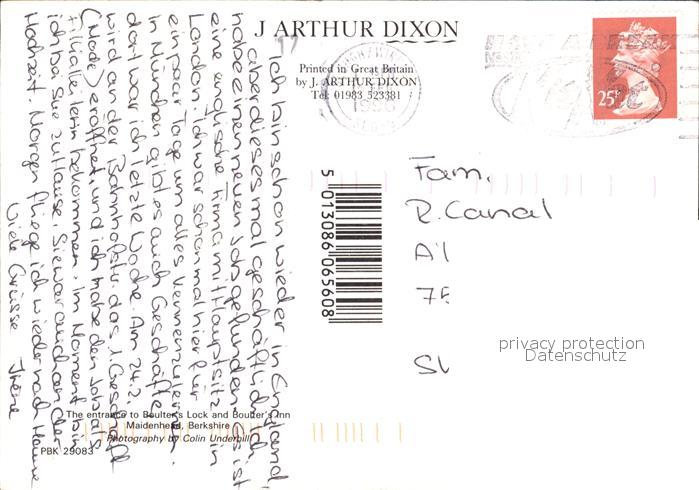 J ARTHUR DIXON
Printed in Great Britain
by J. ARTHUR DIXON
Tel: 01983 523381
25P
Fam.
R. Canal
A'l
7F
SL
privacy protection
Datenschutz
5 013086 065608
Ich bin schon wieder in England,
aber dieses mal geschäftlich. Ich
habe einen neuen Job gefunden. Es ist
eine englische Firma mit Hauptsitz in
London. Ich war schon mal hier für
ein paar Tage um alles kennenzulernen.
In München gibt es auch Geschäfte
dort war ich letzte Woche. Am 24.2.
wird an der Bahnhofstr. das 1. Geschäft
(Mode) eröffnet, und ich habe den Job als
Filialleiterin bekommen. Im Moment bin
ich bei Sue zuhause. Sie war auch an der
Hochzeit. Morgen fliege ich wieder nach Hause
Viele Grüsse Irene
The entrance to Boulter's Lock and Boulter's Inn
Maidenhead, Berkshire
Photography by Colin Underhill
PBK 29083